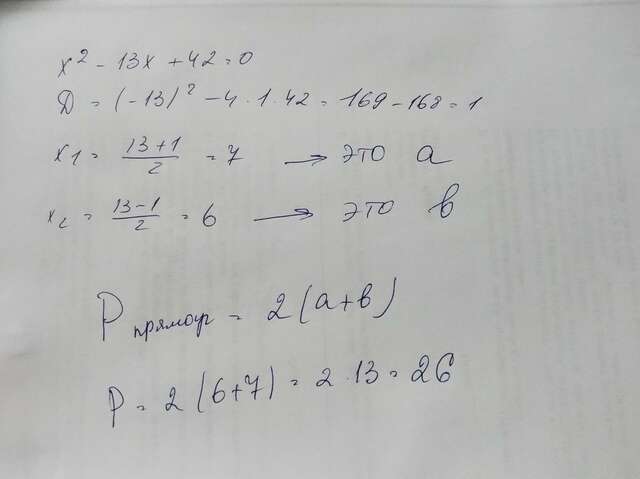 x² - 13x + 42 = 0
Д = (-13)² - 4 · 1 · 42 = 169 - 168 = 1
x1 = 13+1/2 = 7 → это a
x2 = 13-1/2 = 6 → это b
P прямоуг = 2(a+b)
P = 2(6+7) = 2 · 13 = 26